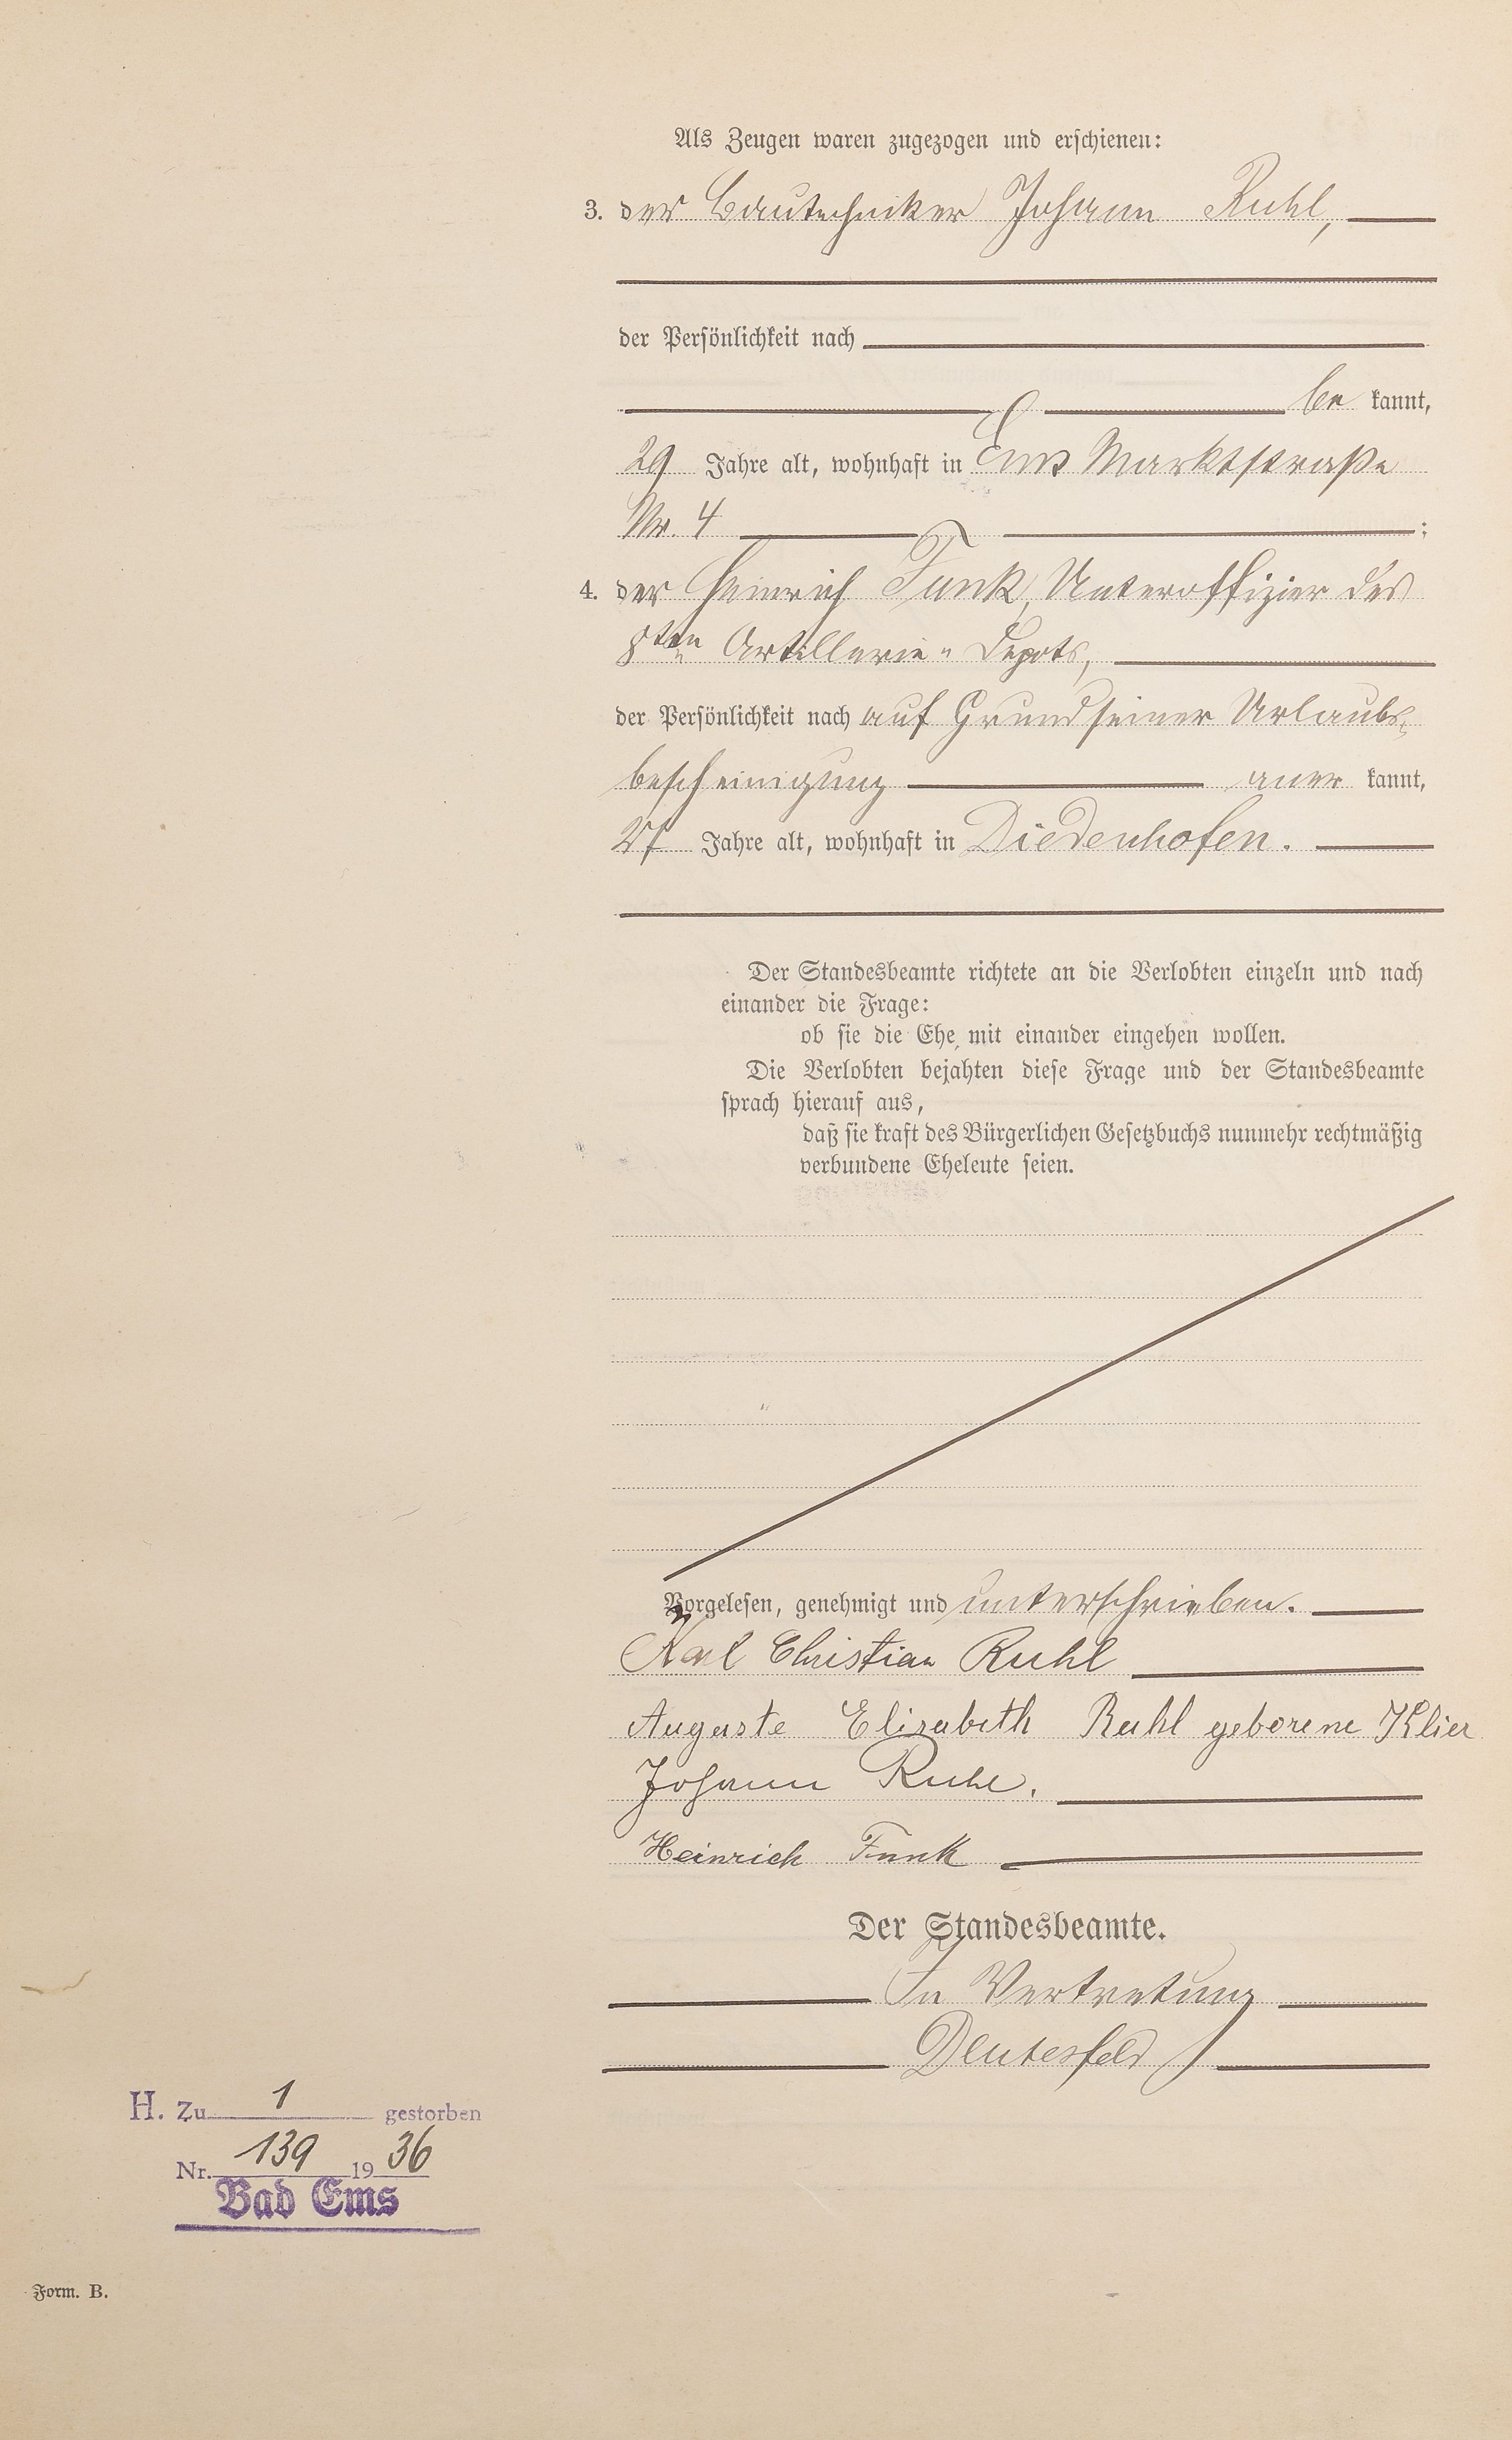 Als Zeugen waren zugezogen und erschienen:
3. der Bautechniker Johann Ruhl,
der Persönlichkeit nach
be kannt,
29 Jahre alt, wohnhaft in Ems Marktstraße
Nr. 4 ;
4. der Heinrich Funk, Unteroffizier des
8ten Artillerie-Depots,
der Persönlichkeit nach auf Grund seiner Urlaubs-
bescheinigung aner kannt,
27 Jahre alt, wohnhaft in Diedenhofen.
Der Standesbeamte richtete an die Verlobten einzeln und nach
einander die Frage:
ob sie die Ehe mit einander eingehen wollen.
Die Verlobten bejahten diese Frage und der Standesbeamte
sprach hierauf aus,
daß sie kraft des Bürgerlichen Gesetzbuchs nunmehr rechtmäßig
verbundene Eheleute seien.
Vorgelesen, genehmigt und unterschrieben.
Karl Christian Ruhl
Auguste Elisabeth Ruhl geborene Klier
Johann Ruhl.
Heinrich Funk
Der Standesbeamte.
In Vertretung
H. Zu 1 gestorben
Nr. 139 1936
Bad Ems
Form. B.